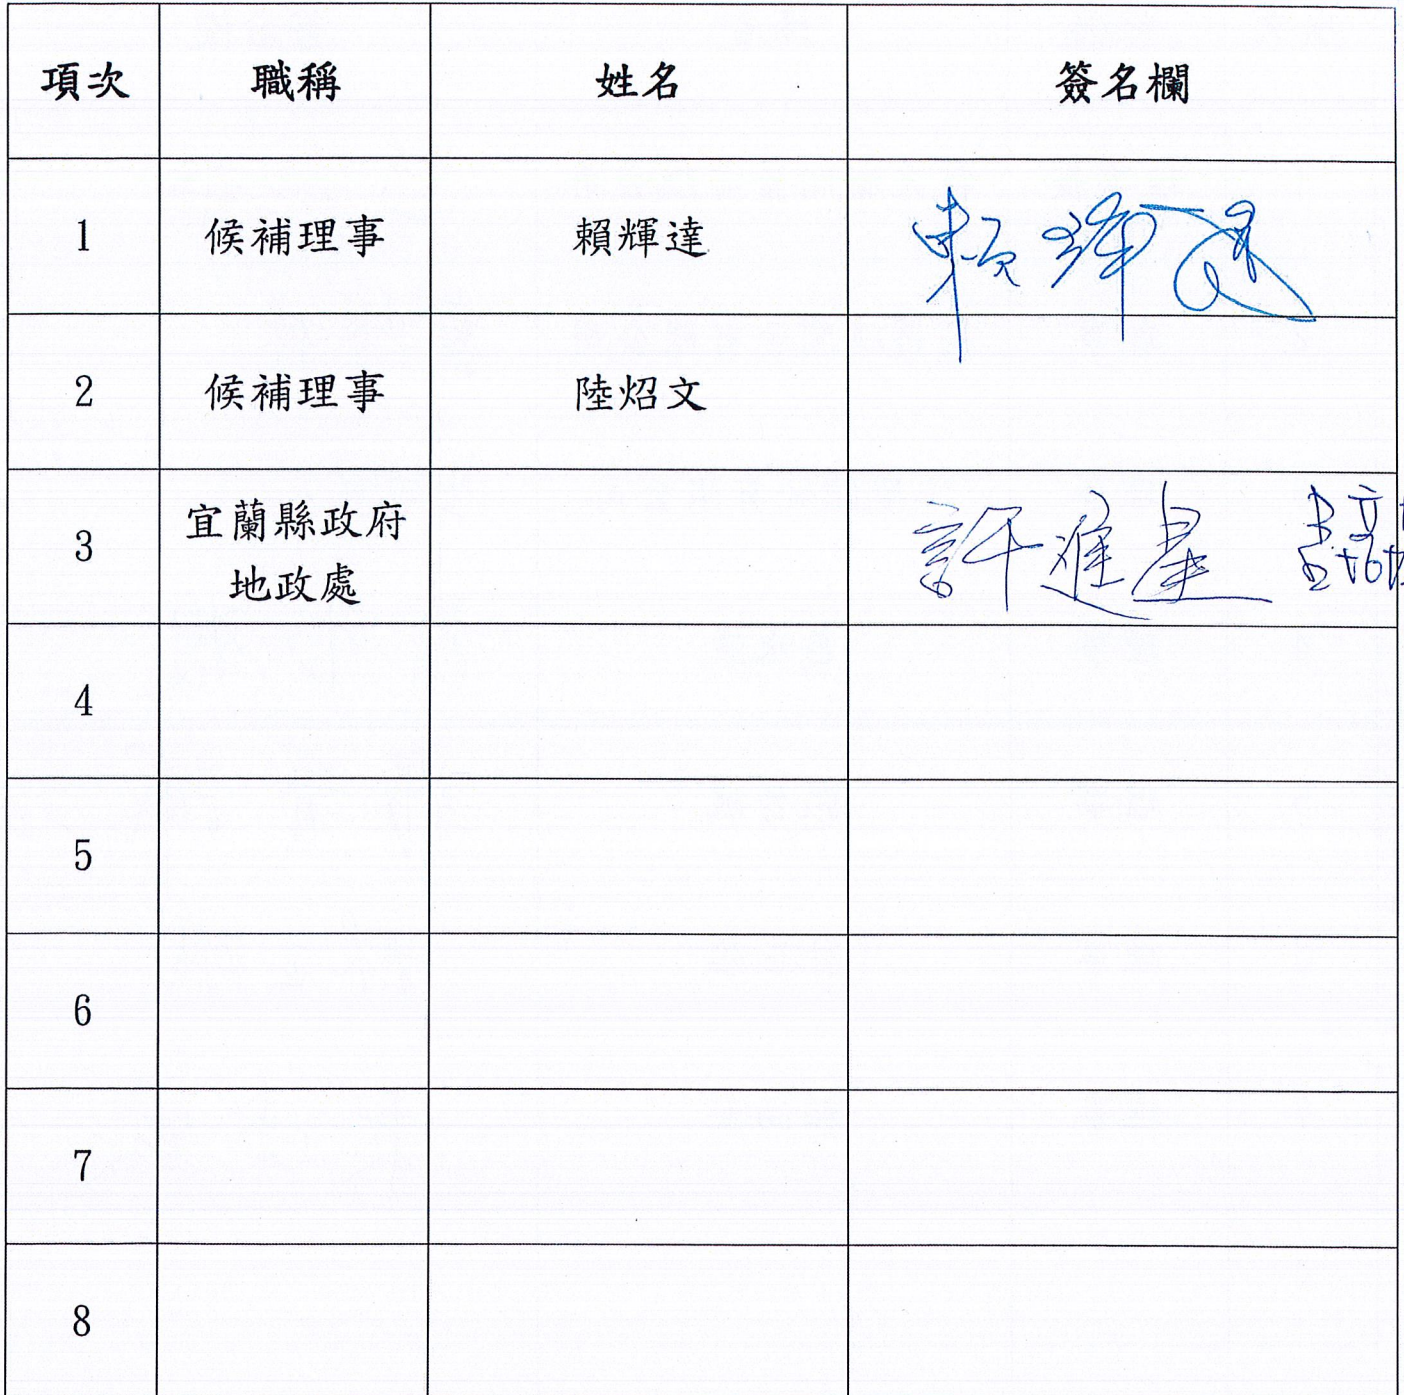 項次 職稱 姓名 簽名欄
1 候補理事 賴輝達 賴輝達
2 候補理事 陸炤文
3 宜蘭縣政府 許進
地政處
4
5
6
7
8